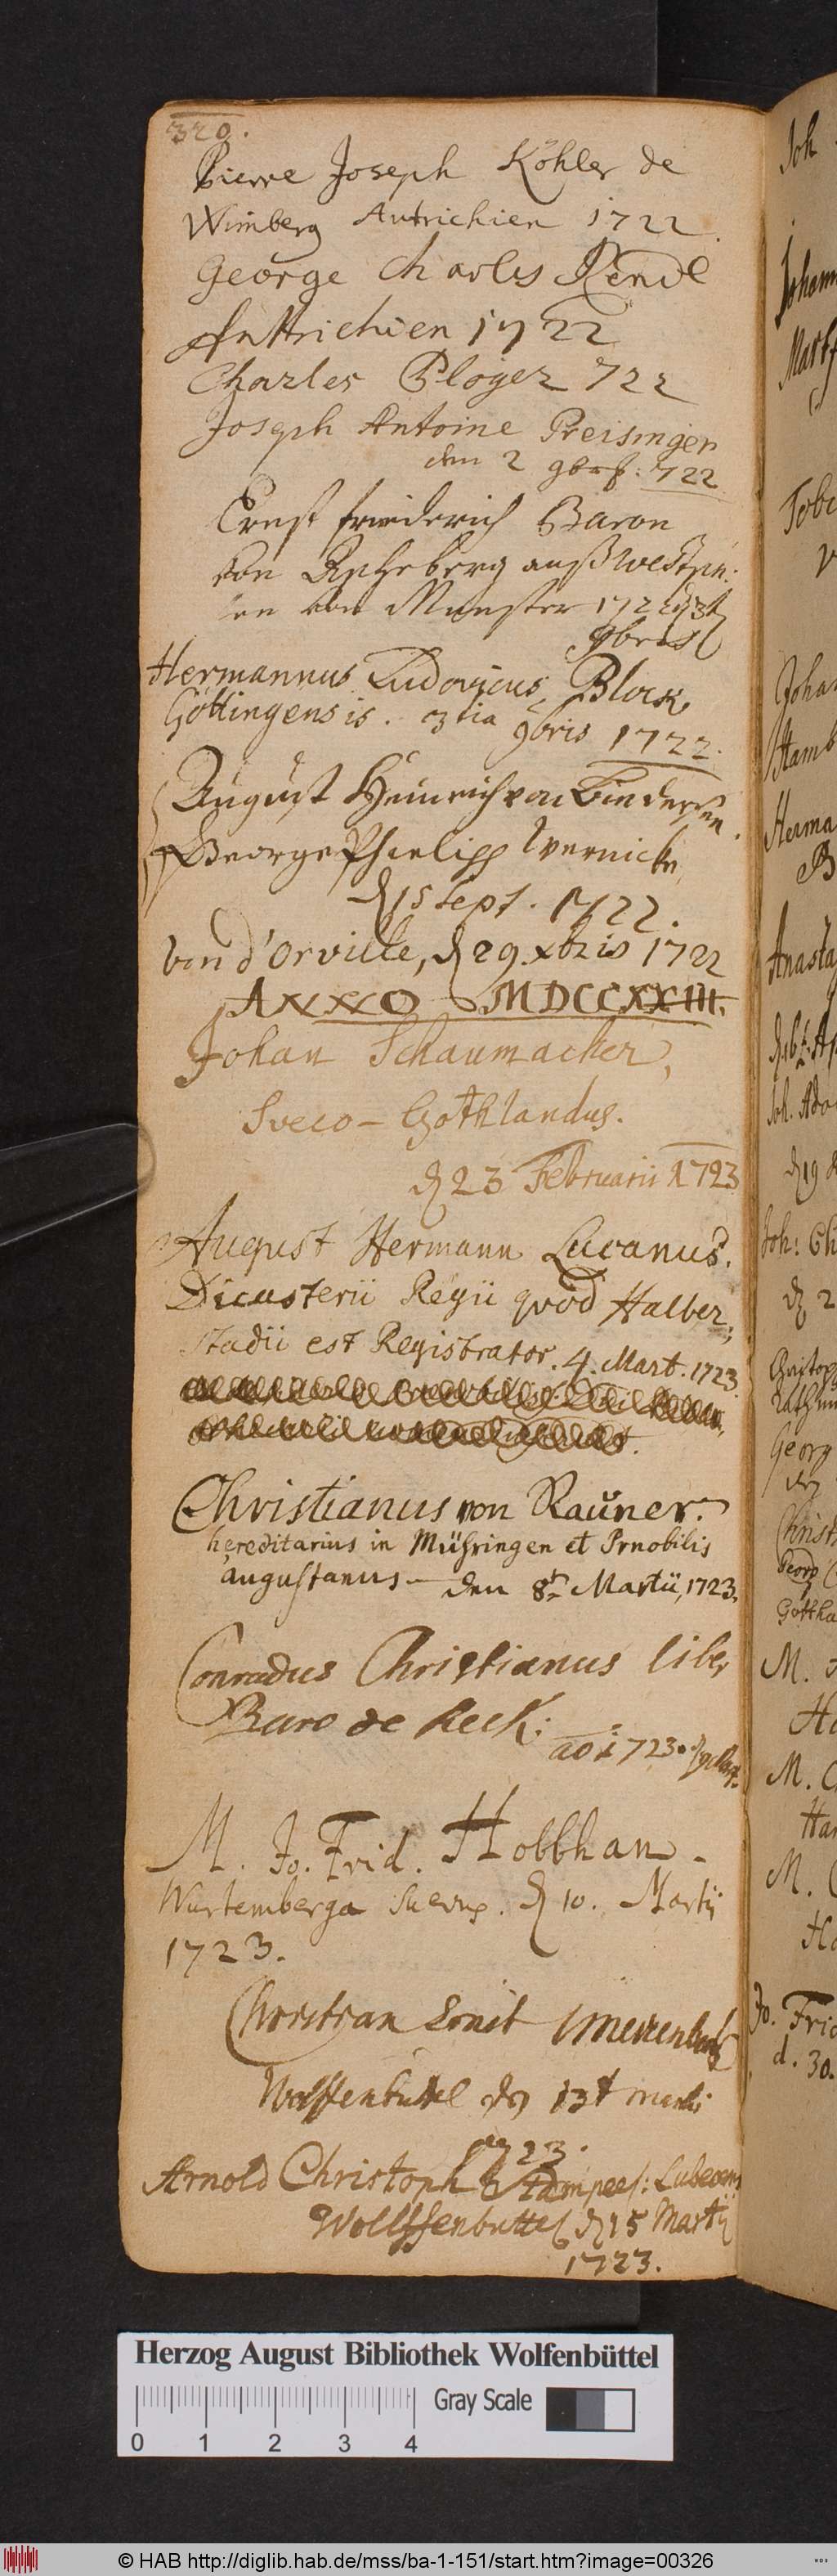 320.
Pierre Joseph Köhler de
Wimberg Autrichien 1722.
George Charles Rendl
Auttrichien 1722
Charles Ployer 722
Joseph Antoine Preisinger
den 2 9br: 722
Ernst friederich Baron
von aus Westph:
en von Munster 1722 d 3t
9bris
Hermannus Ludovicus Block
Göttingensis. 3tia 9bris 1722.
August Heinrich von Bindersen.
George Philipp Wernicke
d 15 Sept. 1722.
von d'Orville, d 29. xbris 1722
ANNO MDCCXXIII.
Johan Schaumacher,
Sveco-Gothlandus.
d 23 Februarii 1723
August Hermann Lucanus.
Dicasterii Regii quod Halber,,
stadii est Registrator. 4. Mart. 1723.
Christianus von Rauner.
hereditarius in Mühringen et Prnobilis
augustanus – den 8t Martii, 1723.
Conradus Christianus liber
Baro de Reck:
ao 1723.
M. Jo. Frid. Hobbhan.
Wurtemberga Suevus. d 10. Martij
1723.
Christian Ernst
Wolffenbuttel d 13t
1723.
Arnold Christoph Lubecens
Wolffenbuttel d 15 Martij
1723.
Joh
Johann
Mart
Tobi
Johan
Hamb
Herma
B
Anasta
Joh. Ado
d 19
Joh: Ch
d 2
Christop
Georg
Christ
Georg
Gottha
M.
Ha
M. C
Han
M.
Ha
Jo. Frid
d. 30.
Herzog August Bibliothek Wolfenbüttel
Gray Scale
0 1 2 3 4
© HAB http://diglib.hab.de/mss/ba-1-151/start.htm?image=00326